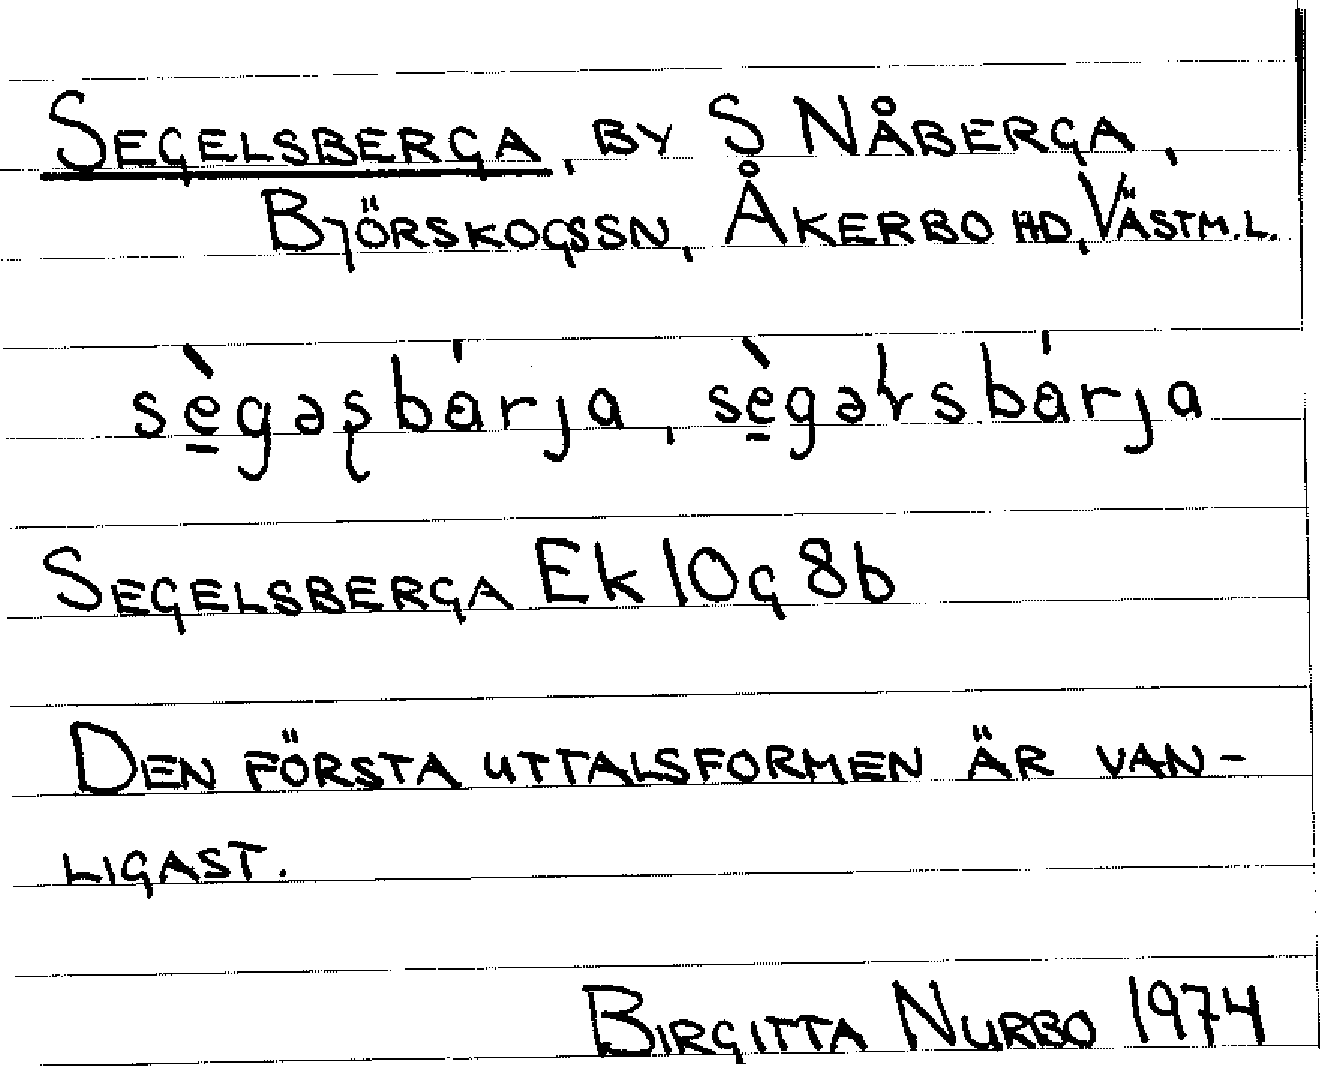 SEGELSBERGA, BY S NÅBERGA,
BJÖRSKOGSSN, ÅKERBO HD, VÄSTM.L.
sè̱gəʂbárja, sè̱gəɽsbárja
SEGELSBERGA Ek 10g 8b
DEN FÖRSTA UTTALSFORMEN ÄR VAN-
LIGAST.
BIRGITTA NURBO 1974